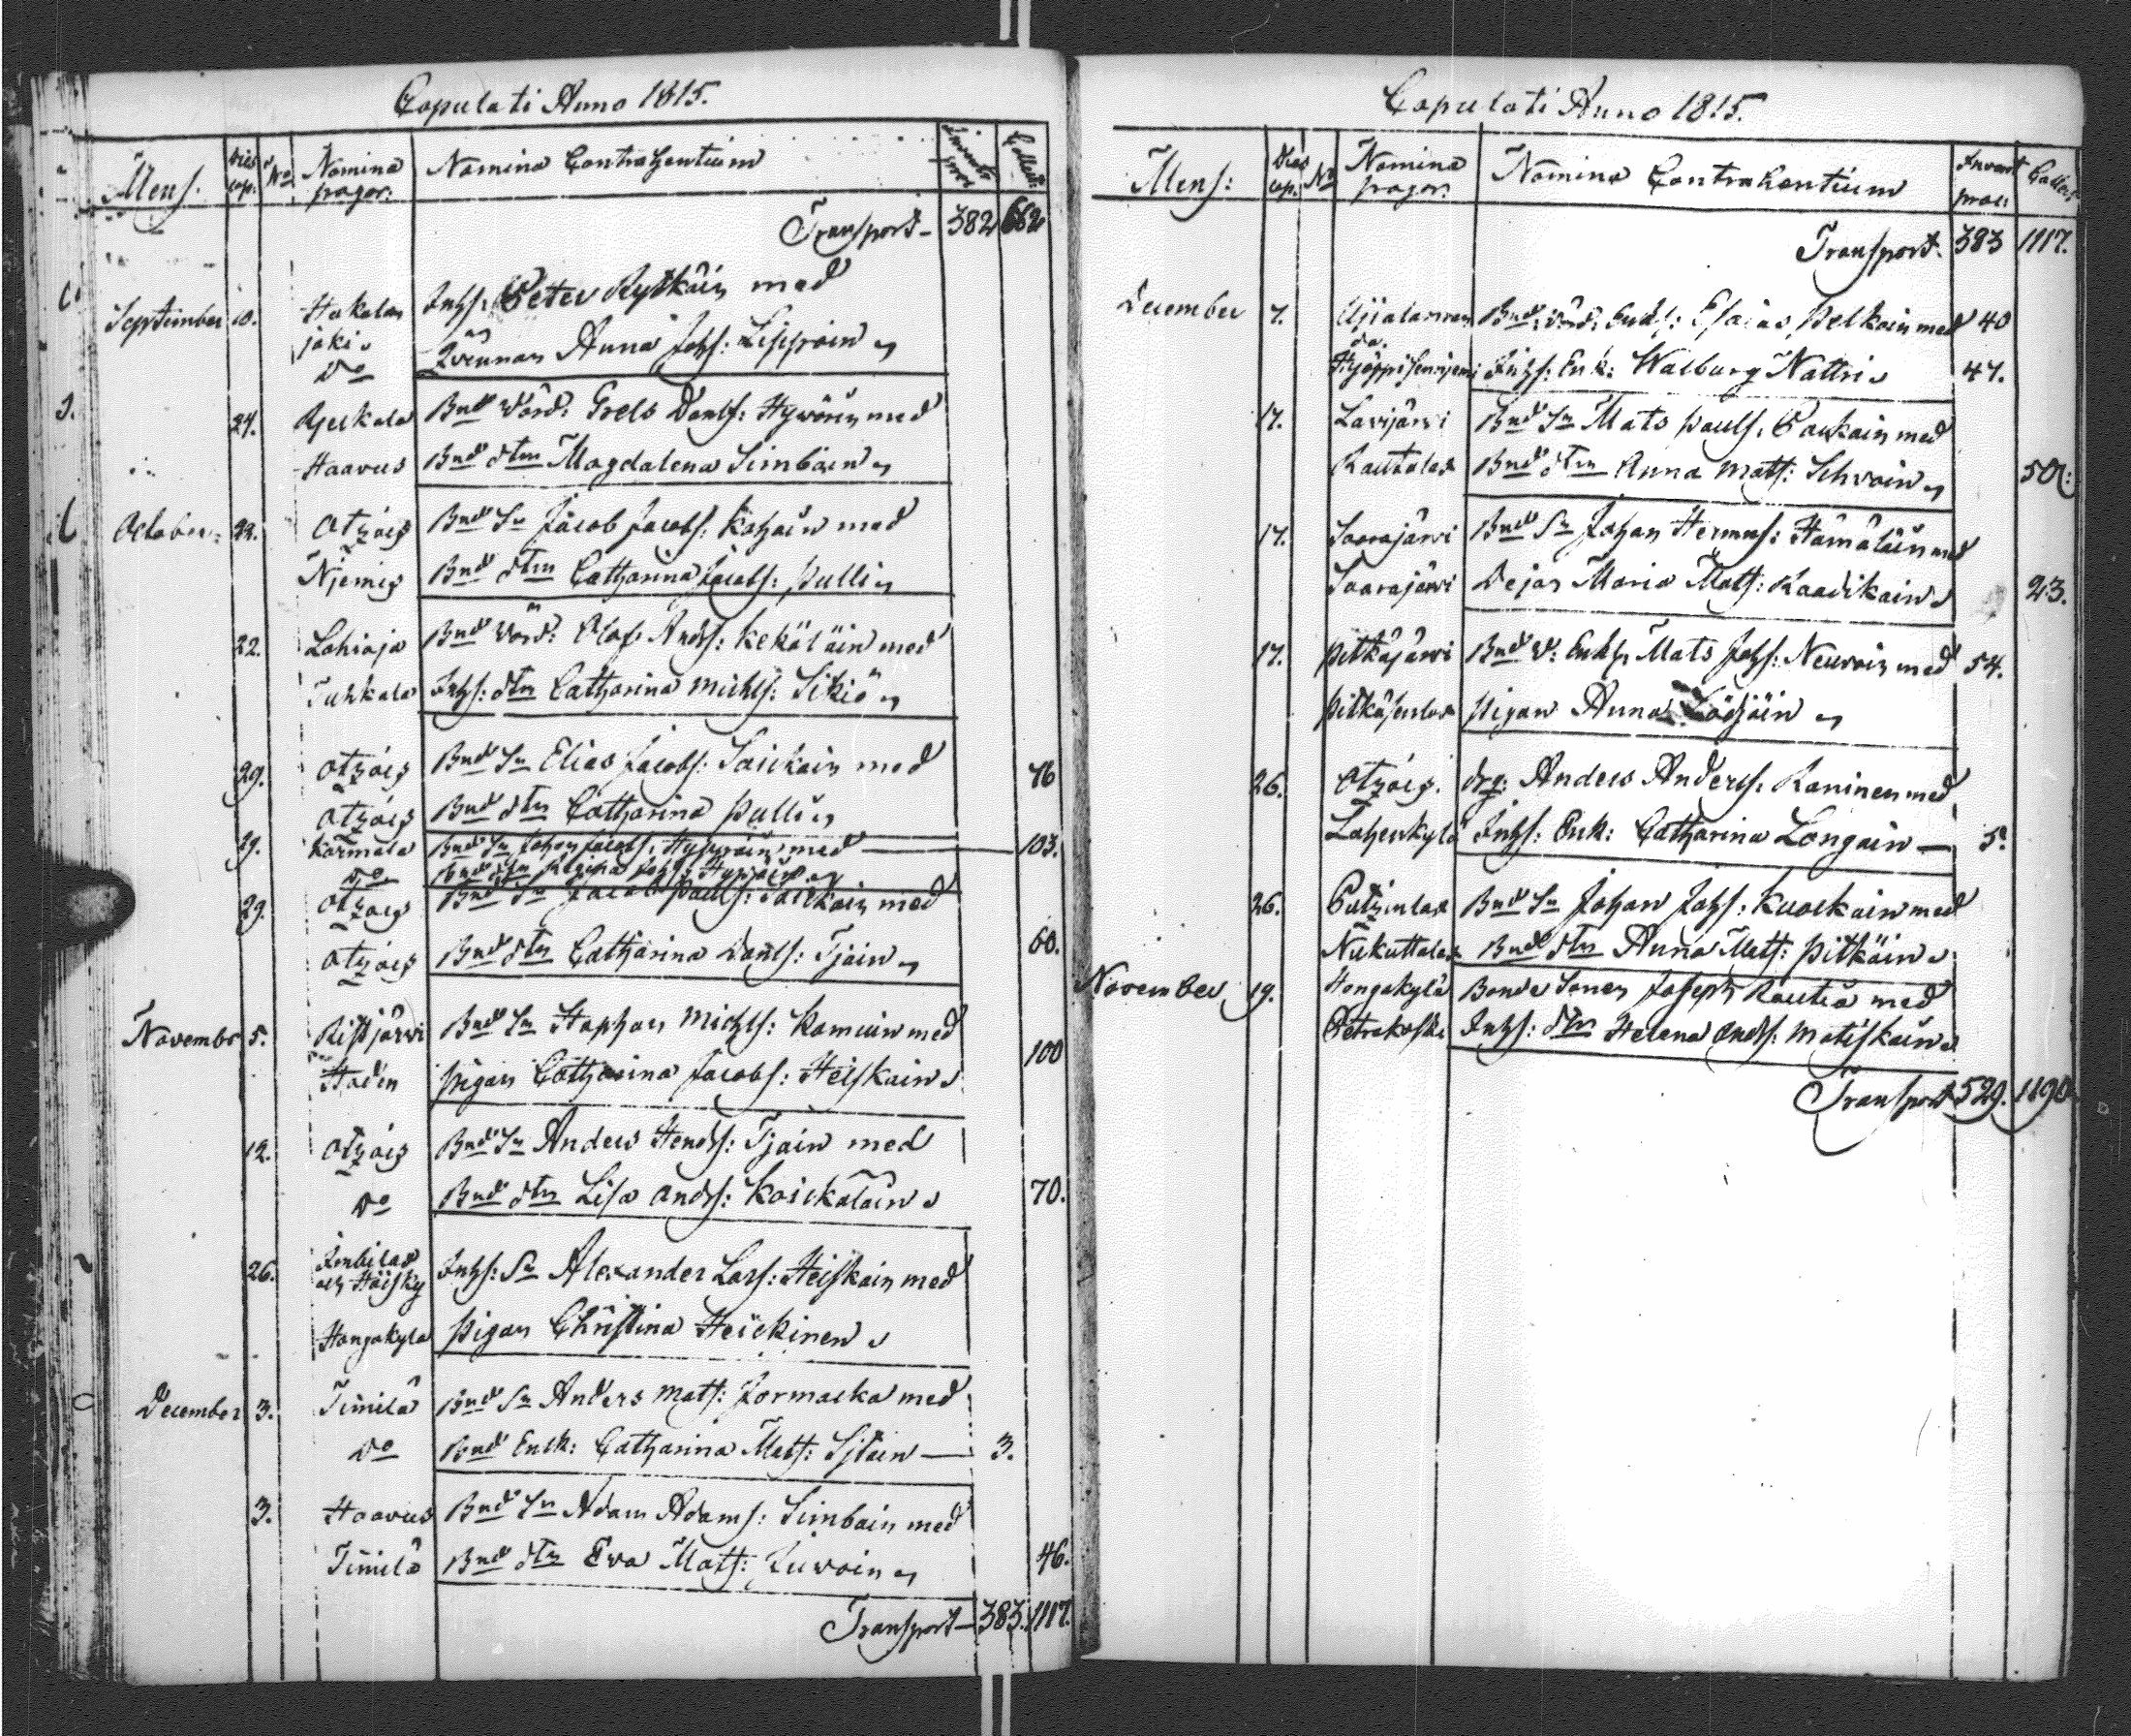 Copulati Anno 1815.
Mens. Dies cop. No Nomina pagor: Nomina Contrahentium Collect:
Transport - 382 662
September 10. Hakalan Inhs: Peter Rytkäin med
joki
Do Qvennan Anna Johs: Lipproin
24. Rjeskala Bnd Wörd: Grels Danls: Hyvärin med
Haavus Bnd dtm Magdalena Simbäin
October 22. Otzois Bnd Sn Jacob Jacobs: Kohain med
Njemis Bnd dtm Catharina Jacobs: Pulli
22. Lahioja Bnd Wörd: Olof Ands: Kekäläin med
Tuhkala Inhs: dtm Catharina Michls: Sikiö
29. Otzois Bnd Sn Elias Jacobs: Saickain med 76
Otzois Bnd dtm Catharina Pulli
29. Kärmälä Bnd Sn Johan Jacobs: med 103.
Do Bnd dtm Regina Johs:
29. Otzois Bnd Sn Jacob Pauls: Saickain med
Otzois Bnd dtm Catharina Danls: Tjäin 60.
November 5. Ristjärvi Bnd Sn Staphan Michls: Romuin med
Staden Pigan Catharina Jacobs: Heiskain 100
12. Otzois Bnd Sn Anders Hends: Tjäin med
Do Bnd dtm Lisa Ands: Kaickaläin 70.
26. Imbilax och Häisky Inhs: Sn Alexander Lars: Heiskain med
Hangakylä Pigan Christina Heickinen
December 3. Timilä Bnd Sn Anders Mats: Jormacka med
Do Bnd Enck: Catharina Mats: Sjläin — 3.
3. Haavus Bnd Sn Adam Adams: Simbain med
Timilä Bnd dtm Eva Mats: Juvoin 46.
Transport - 383. 1117.
Copulati Anno 1815.
Mens: Dies cop. No Nomina pagor: Nomina Contrahentium Collect
Transport. 383 1117.
December 7. Bnd: Wörd: Enckl: Esaias Pelkoin med 40
Inhs: Enk: Walburg Nattri 47.
17. Lavijärvi Bnd Sn Mats Pauls: Paukain med
Rautalax Bnd dtm Anna Mats: Ihvoin 50.
17. Saarajärvi Bnd Sn Johan Hermns: Hämäläin med
Saarajärvi Dejan Maria Mats: Kaadikain 23.
17. Pitkäjärvi Bnd W: Enkl Mats Johs: Neuvoin med 54.
Pitkäsenlax Pigan Anna Lödjöin
26. Otzois. drg: Anders Anders: Raninen med
Lahenkylä Inhs: Enk: Catharina Longain — 5.
26. Putzinlax Bnd Sn Johan Johs: Kuockain med
Nukuttalax Bnd dtm Anna Mats: Pitkäin
November 19. Hangakylä Bonde Sonen Joseph Rautia med
Petrakoski Inhs: dtm Helena Ands: Matiskain
Transport 529. 1190